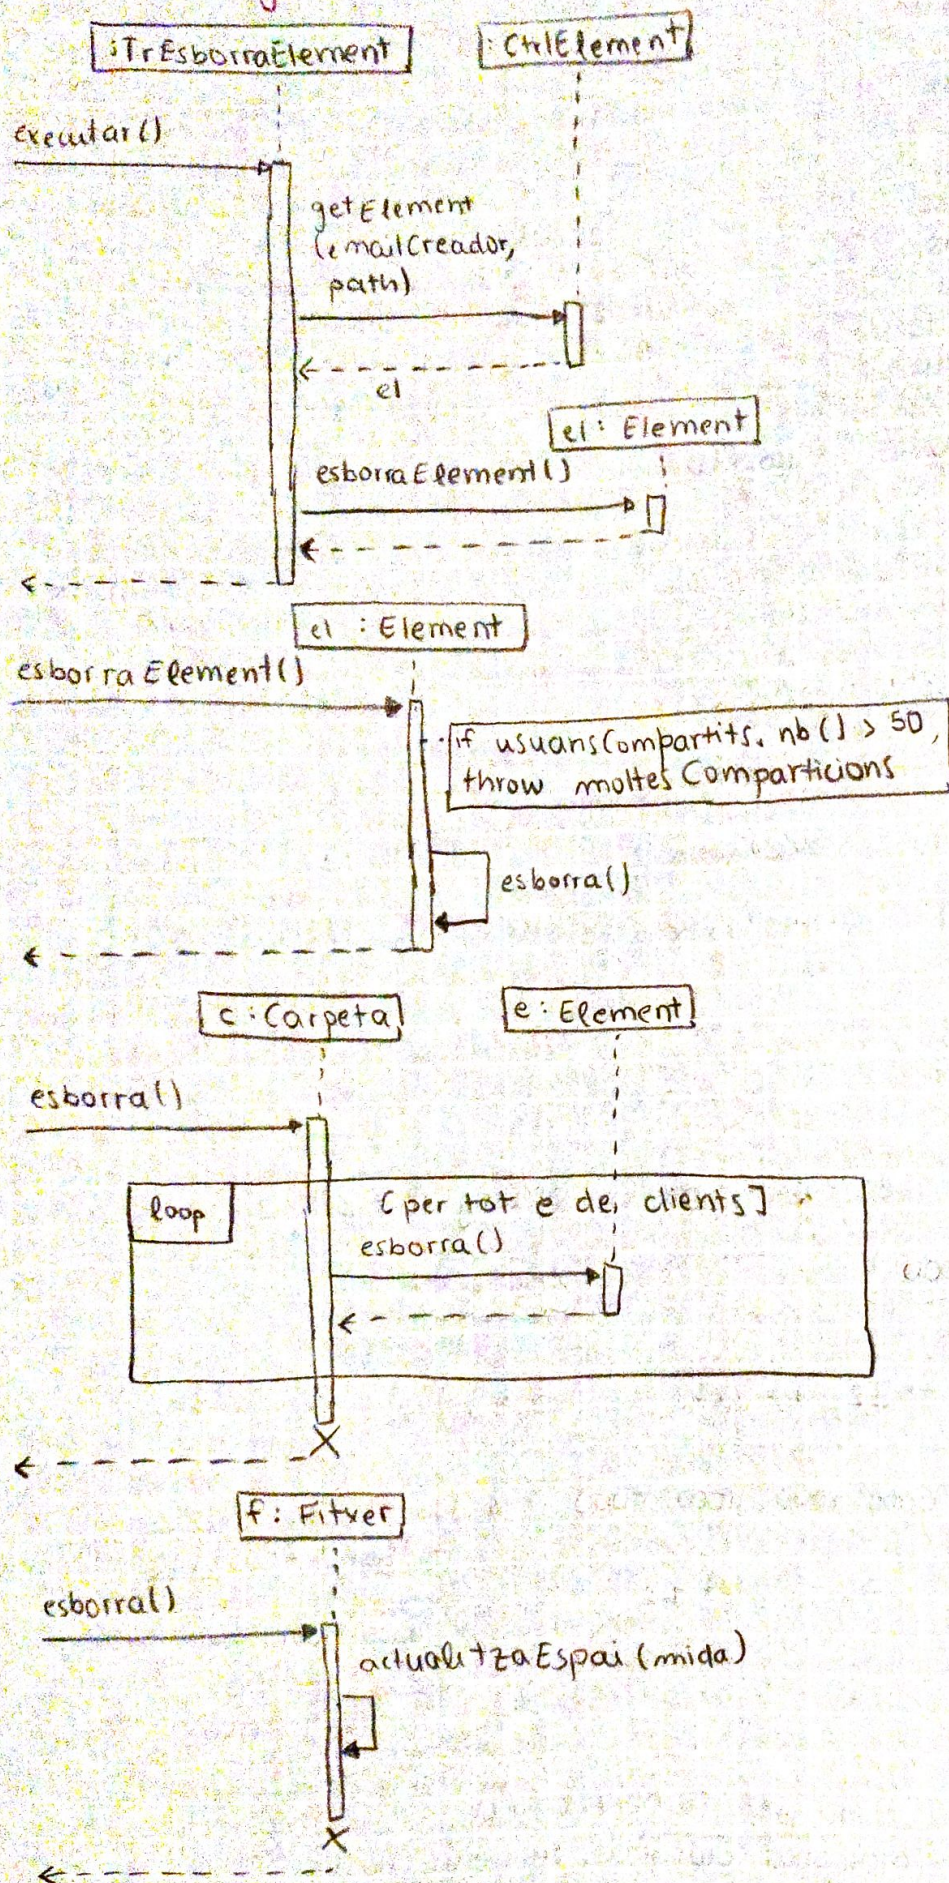 :TrEsborraElement
:CtrlElement
executar()
getElement
(emailCreador,
path)
el
el: Element
esborraElement()
el :Element
esborraElement()
if usuarisCompartits.nb() > 50,
throw moltesComparticions
esborra()
c:Carpeta
e:Element
esborra()
loop
[per tot e de clients]
esborra()
f: Fitxer
esborra()
actualitzaEspai(mida)